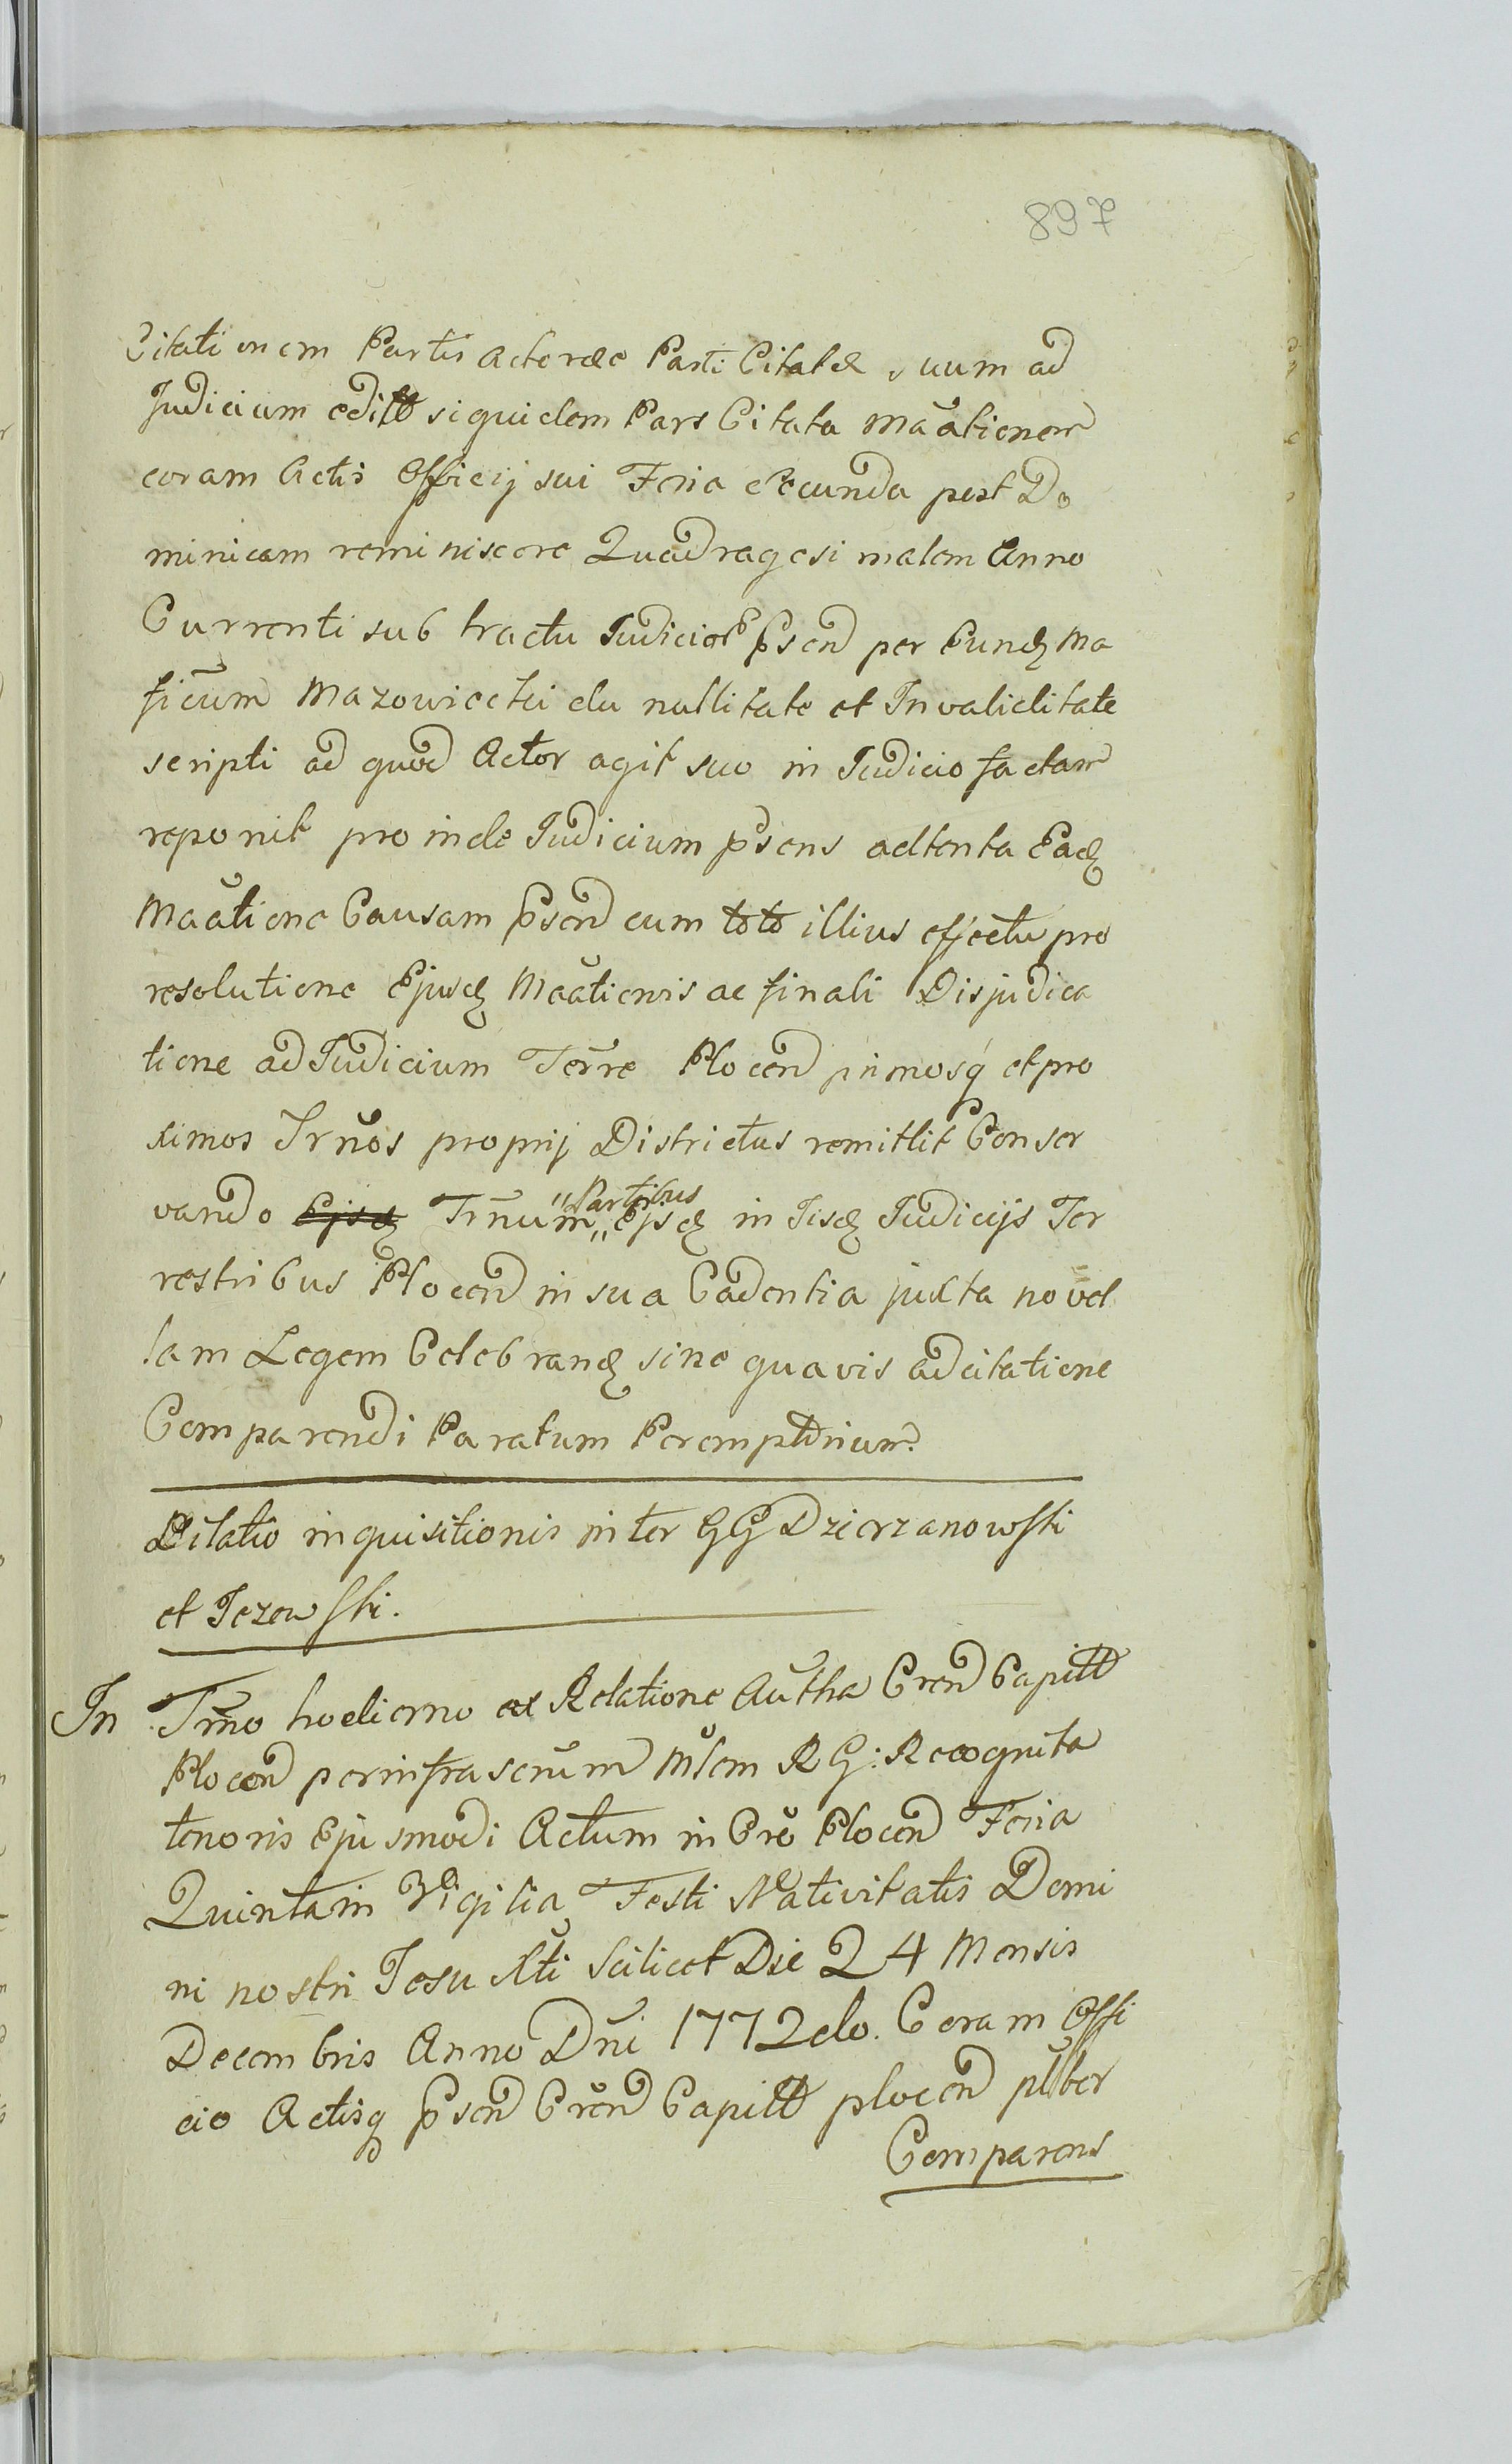 897
Citationem Partis Actoreæ Parti Citatæ suum ad
Judicium editt siquidem Pars Citata Mãationem
coram Actis Officij sui Feria Secunda post Do
minicam reminiscere Quadragesimalem Anno
Currenti sub tractu Judicior Psen per Eundę Ma
ficum Mazowiecki du nullitate et Invaliditate
scripti ad quod Actor agit suo in Judicio factam
reponit pro inde Judicium psens adtenta Eadę
Mãatione Causam Psen cum toto illius effectu pro
resolutione Ejusdę Mãationis ac finali Disjudica
tione ad Judicium Terre Plocen primosq et pro
ximos Trnos proprij Districtus remittit Conser
vando Ejsdę Trnum "Partibus" Ejsdę in Iisdę Judicijs Ter
restribus Plocen in sua Cadentia juxta novel
lam Legem Celebrandę sine quavis adcitatione
Comparendi Paratum Peremptorium.
Dilatio inquisitionis inter GG Dzierzanowski
et Jezewski.
In Trno hodierno ex Relatione Autha Cren Capitt
Plocen per infrascrum Mlem RG: Recognita
tenoris Ejusmodi Actum in Cro Plocen Feria
Quinta in Vigilia Festi Nativitatis Domi
ni nostri Jesu Xti Scilicet Die 24 Mensis
Decembris Anno Dni 1772do. Coram Offi
cio Actisq Psen Cren Capitt plocen plber
Comparens